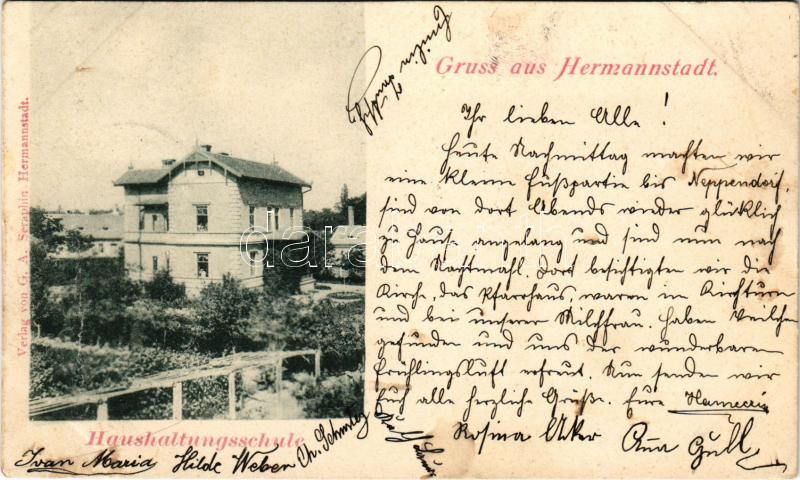 Gruss aus Hermannstadt.
Ihr lieben Alle!
Heute Nachmittag machten wir
eine kleine Fußpartie bis Neppendorf,
sind von dort Abends wieder glücklich
zu Hause angelangt und sind nun nach
dem Nachtmahl. Dort besichtigten wir die
Kirche, das Pfarrhaus, waren im Kirchturm
und bei unserer Milchfrau. Haben Veilchen
gefunden und uns der wunderbaren
Frühlingsluft erfreut. Nun senden wir
Euch alle herzliche Grüße. Eure
Rosina
Verlag von G. A. Seraphin Hermannstadt.
Haushaltungsschule
Ivan Maria Hilde Weber
darabanth